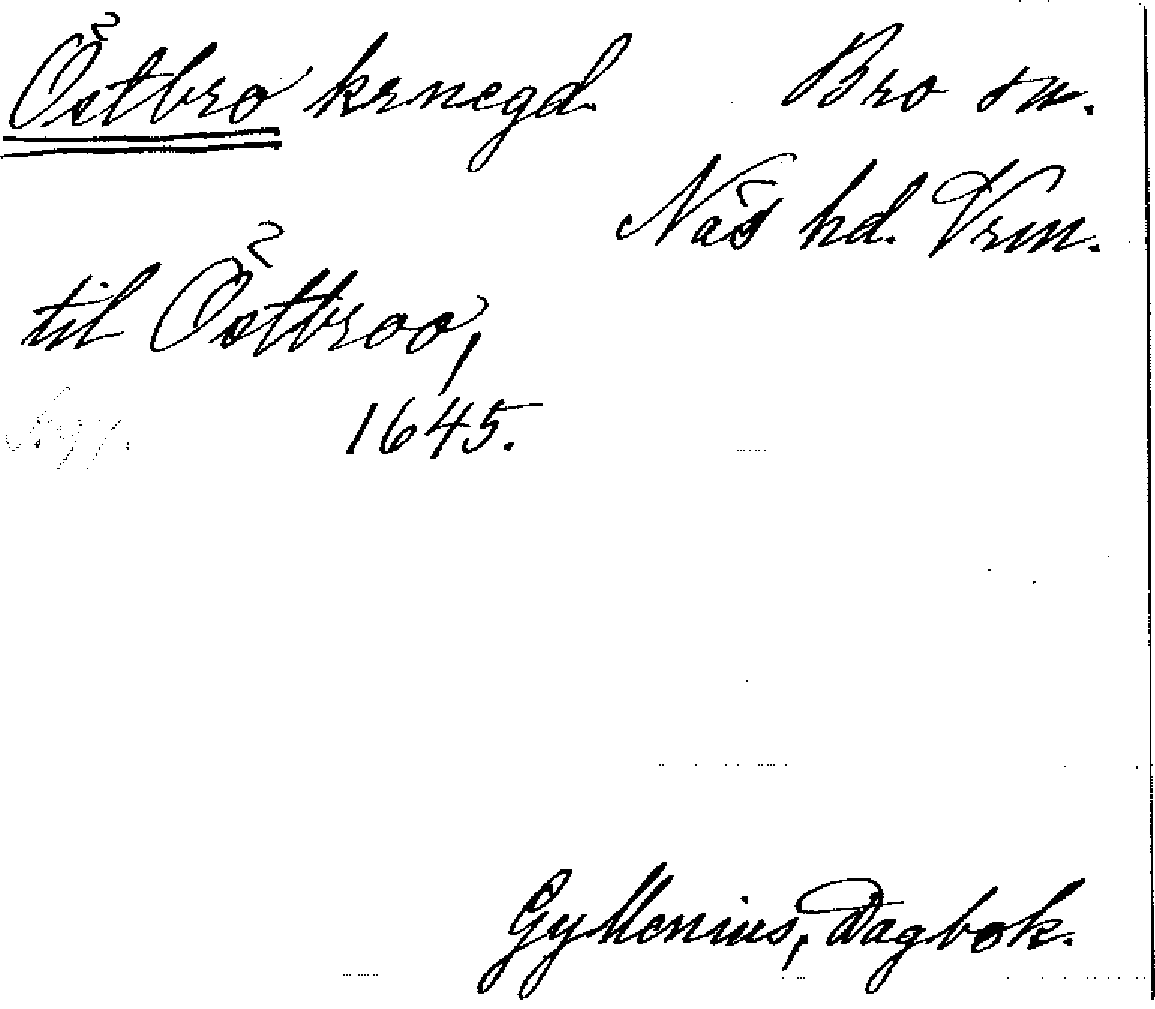 Östbro krnegd Bro sn.
Näs hd. Vrm.
til Östbroo,
1645.
Gyllenius, Dagbok.